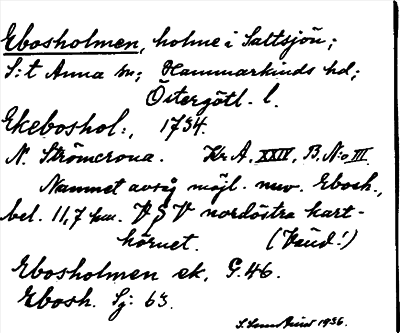 Ebosholmen, holme i Saltsjön;
S:t Anna sn; Hammarkinds hd;
Östergötl. l.
Ekeboshol:, 1734.
N. Strömcrona. Kr. A. XXIV, B. N:o III.
Namnet avsåg möjl. nuv. Ebosh.,
bel. 11,7 km. V g V nordöstra kart-
hörnet. (Vänd!)
Ebosholmen ek. G. 46.
Ebosh. Sj: 63.
1936.